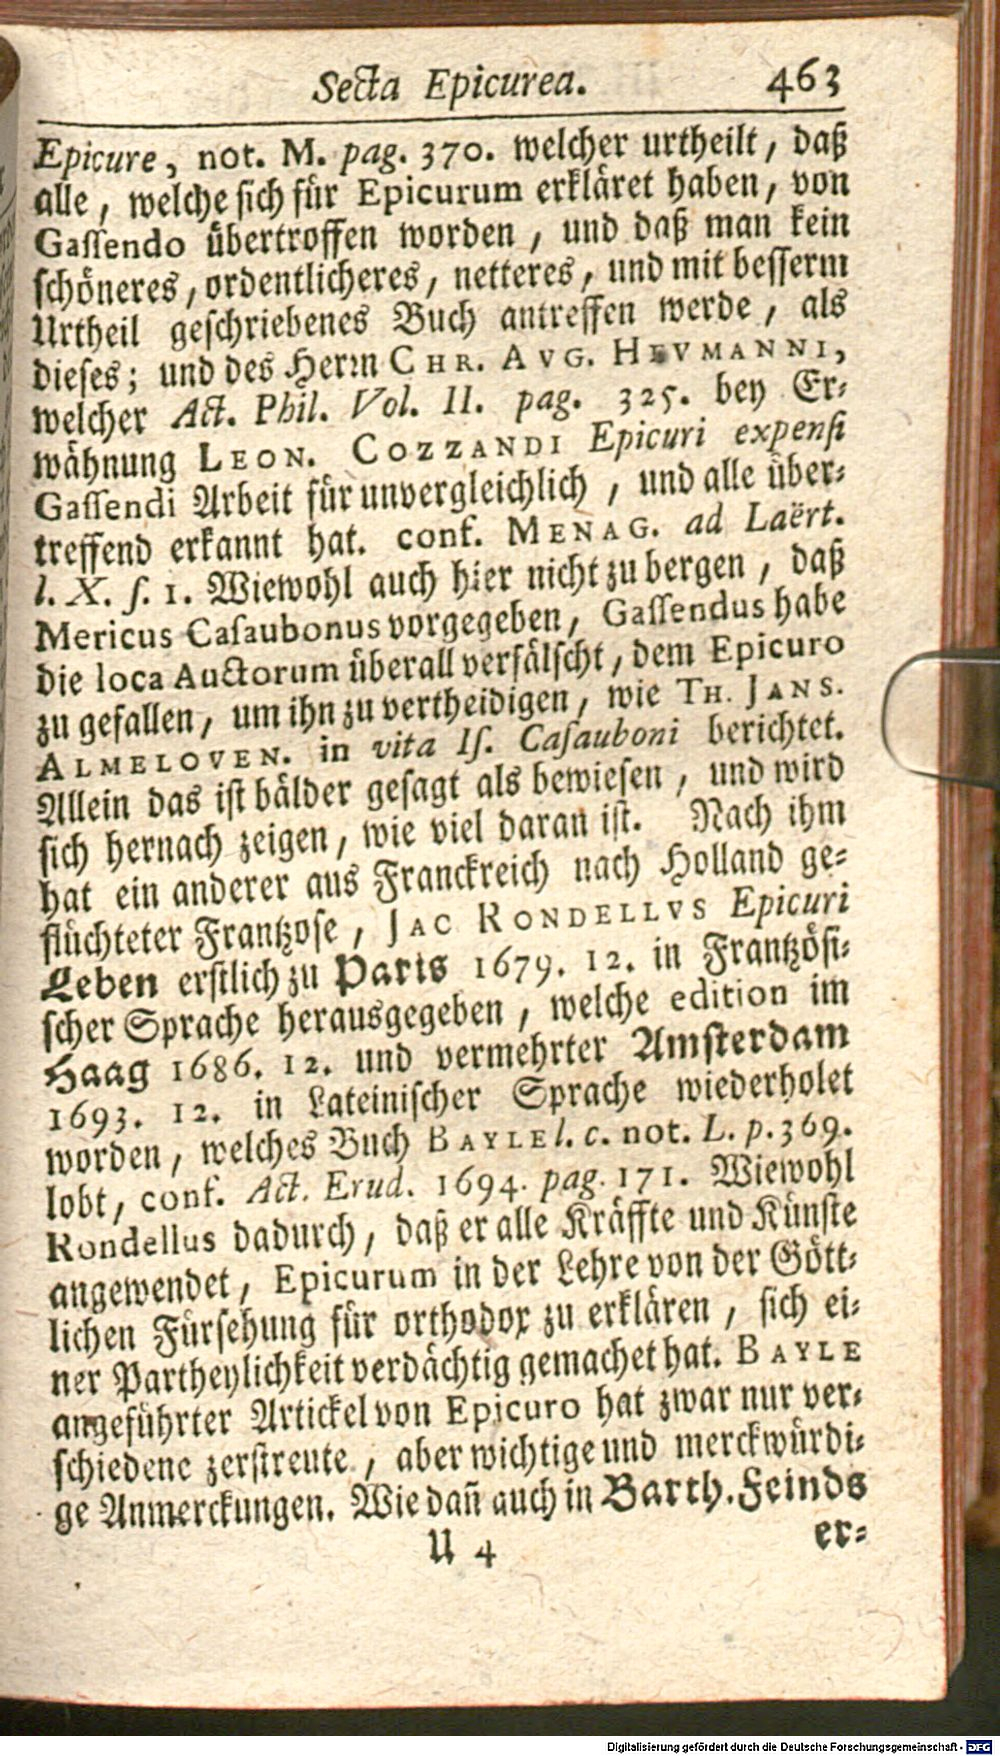 Secta Epicurea. 463
Epicure, not. M. pag. 370. welcher urtheilt, daß
alle, welche sich für Epicurum erkläret haben, von
Gaſſendo übertroffen worden, und daß man kein
schöneres, ordentlicheres, netteres, und mit besserm
Urtheil geschriebenes Buch antreffen werde, als
dieses; und des Herrn CHR. AVG. HEVMANNI,
welcher Act. Phil. Vol. II. pag. 325. bey Er-
wähnung LEON. COZZANDI Epicuri expenſi
Gaſſendi Arbeit für unvergleichlich, und alle über-
treffend erkannt hat. conf. MENAG. ad Laërt.
l. X. ſ. 1. Wiewohl auch hier nicht zu bergen, daß
Mericus Caſaubonus vorgegeben, Gaſſendus habe
die loca Auctorum überall verfälscht, dem Epicuro
zu gefallen, um ihn zu vertheidigen, wie TH. JANS.
ALMELOVEN. in vita Iſ. Caſauboni berichtet.
Allein das ist bälder gesagt als bewiesen, und wird
sich hernach zeigen, wie viel daran ist. Nach ihm
hat ein anderer aus Franckreich nach Holland ge-
flüchteter Frantzose, JAC RONDELLVS Epicuri
Leben erstlich zu Paris 1679. 12. in Frantzösi-
scher Sprache herausgegeben, welche edition im
Haag 1686. 12. und vermehrter Amsterdam
1693. 12. in Lateinischer Sprache wiederholet
worden, welches Buch BAYLE l. c. not. L. p. 369.
lobt, conf. Act. Erud. 1694. pag. 171. Wiewohl
Rondellus dadurch, daß er alle Kräffte und Künste
angewendet, Epicurum in der Lehre von der Gött-
lichen Fürsehung für orthodox zu erklären, sich ei-
ner Partheylichkeit verdächtig gemachet hat. BAYLE
angeführter Artickel von Epicuro hat zwar nur ver-
schiedene zerstreute, aber wichtige und merckwürdi-
ge Anmerckungen. Wie dañ auch in Barth. Feinds
U 4 er-
Digitalisierung gefördert durch die Deutsche Forschungsgemeinschaft - DFG